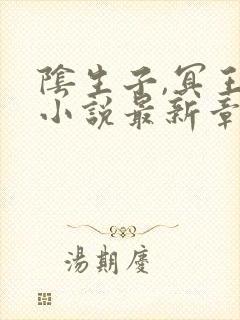 陰生子,冥王
小說最新章
湯期慶